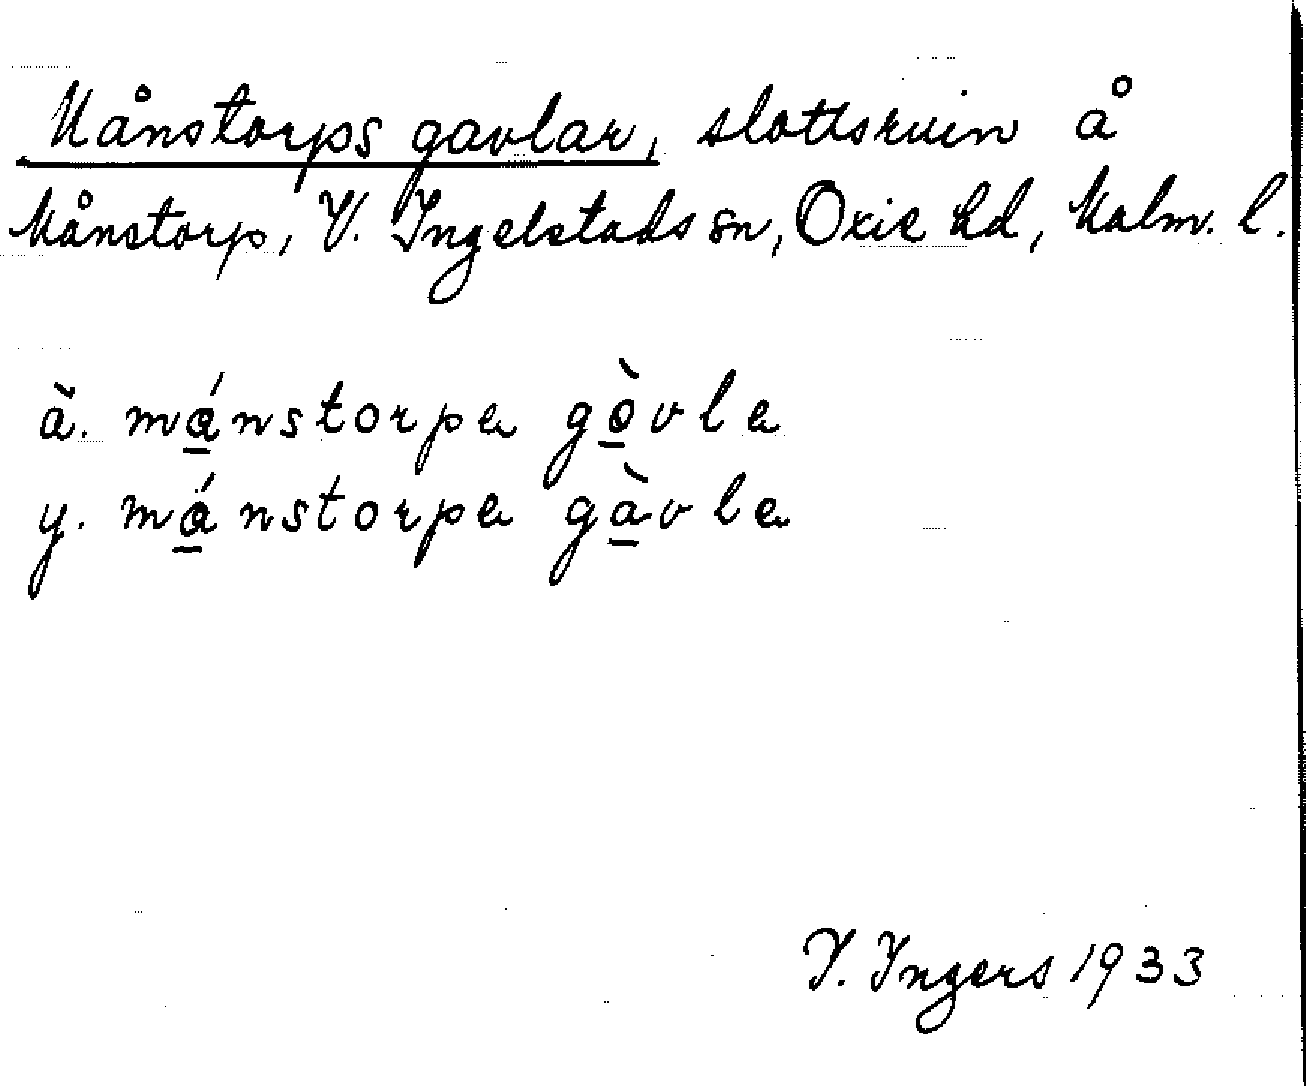 Månstorps gavlar, slottsruin å
Månstorp, V. Ingelstads sn, Oxie hd, Malm. l.
ä. mánstorpa gòvla
y. mánstorpa gàvla
I. Ingers 1933